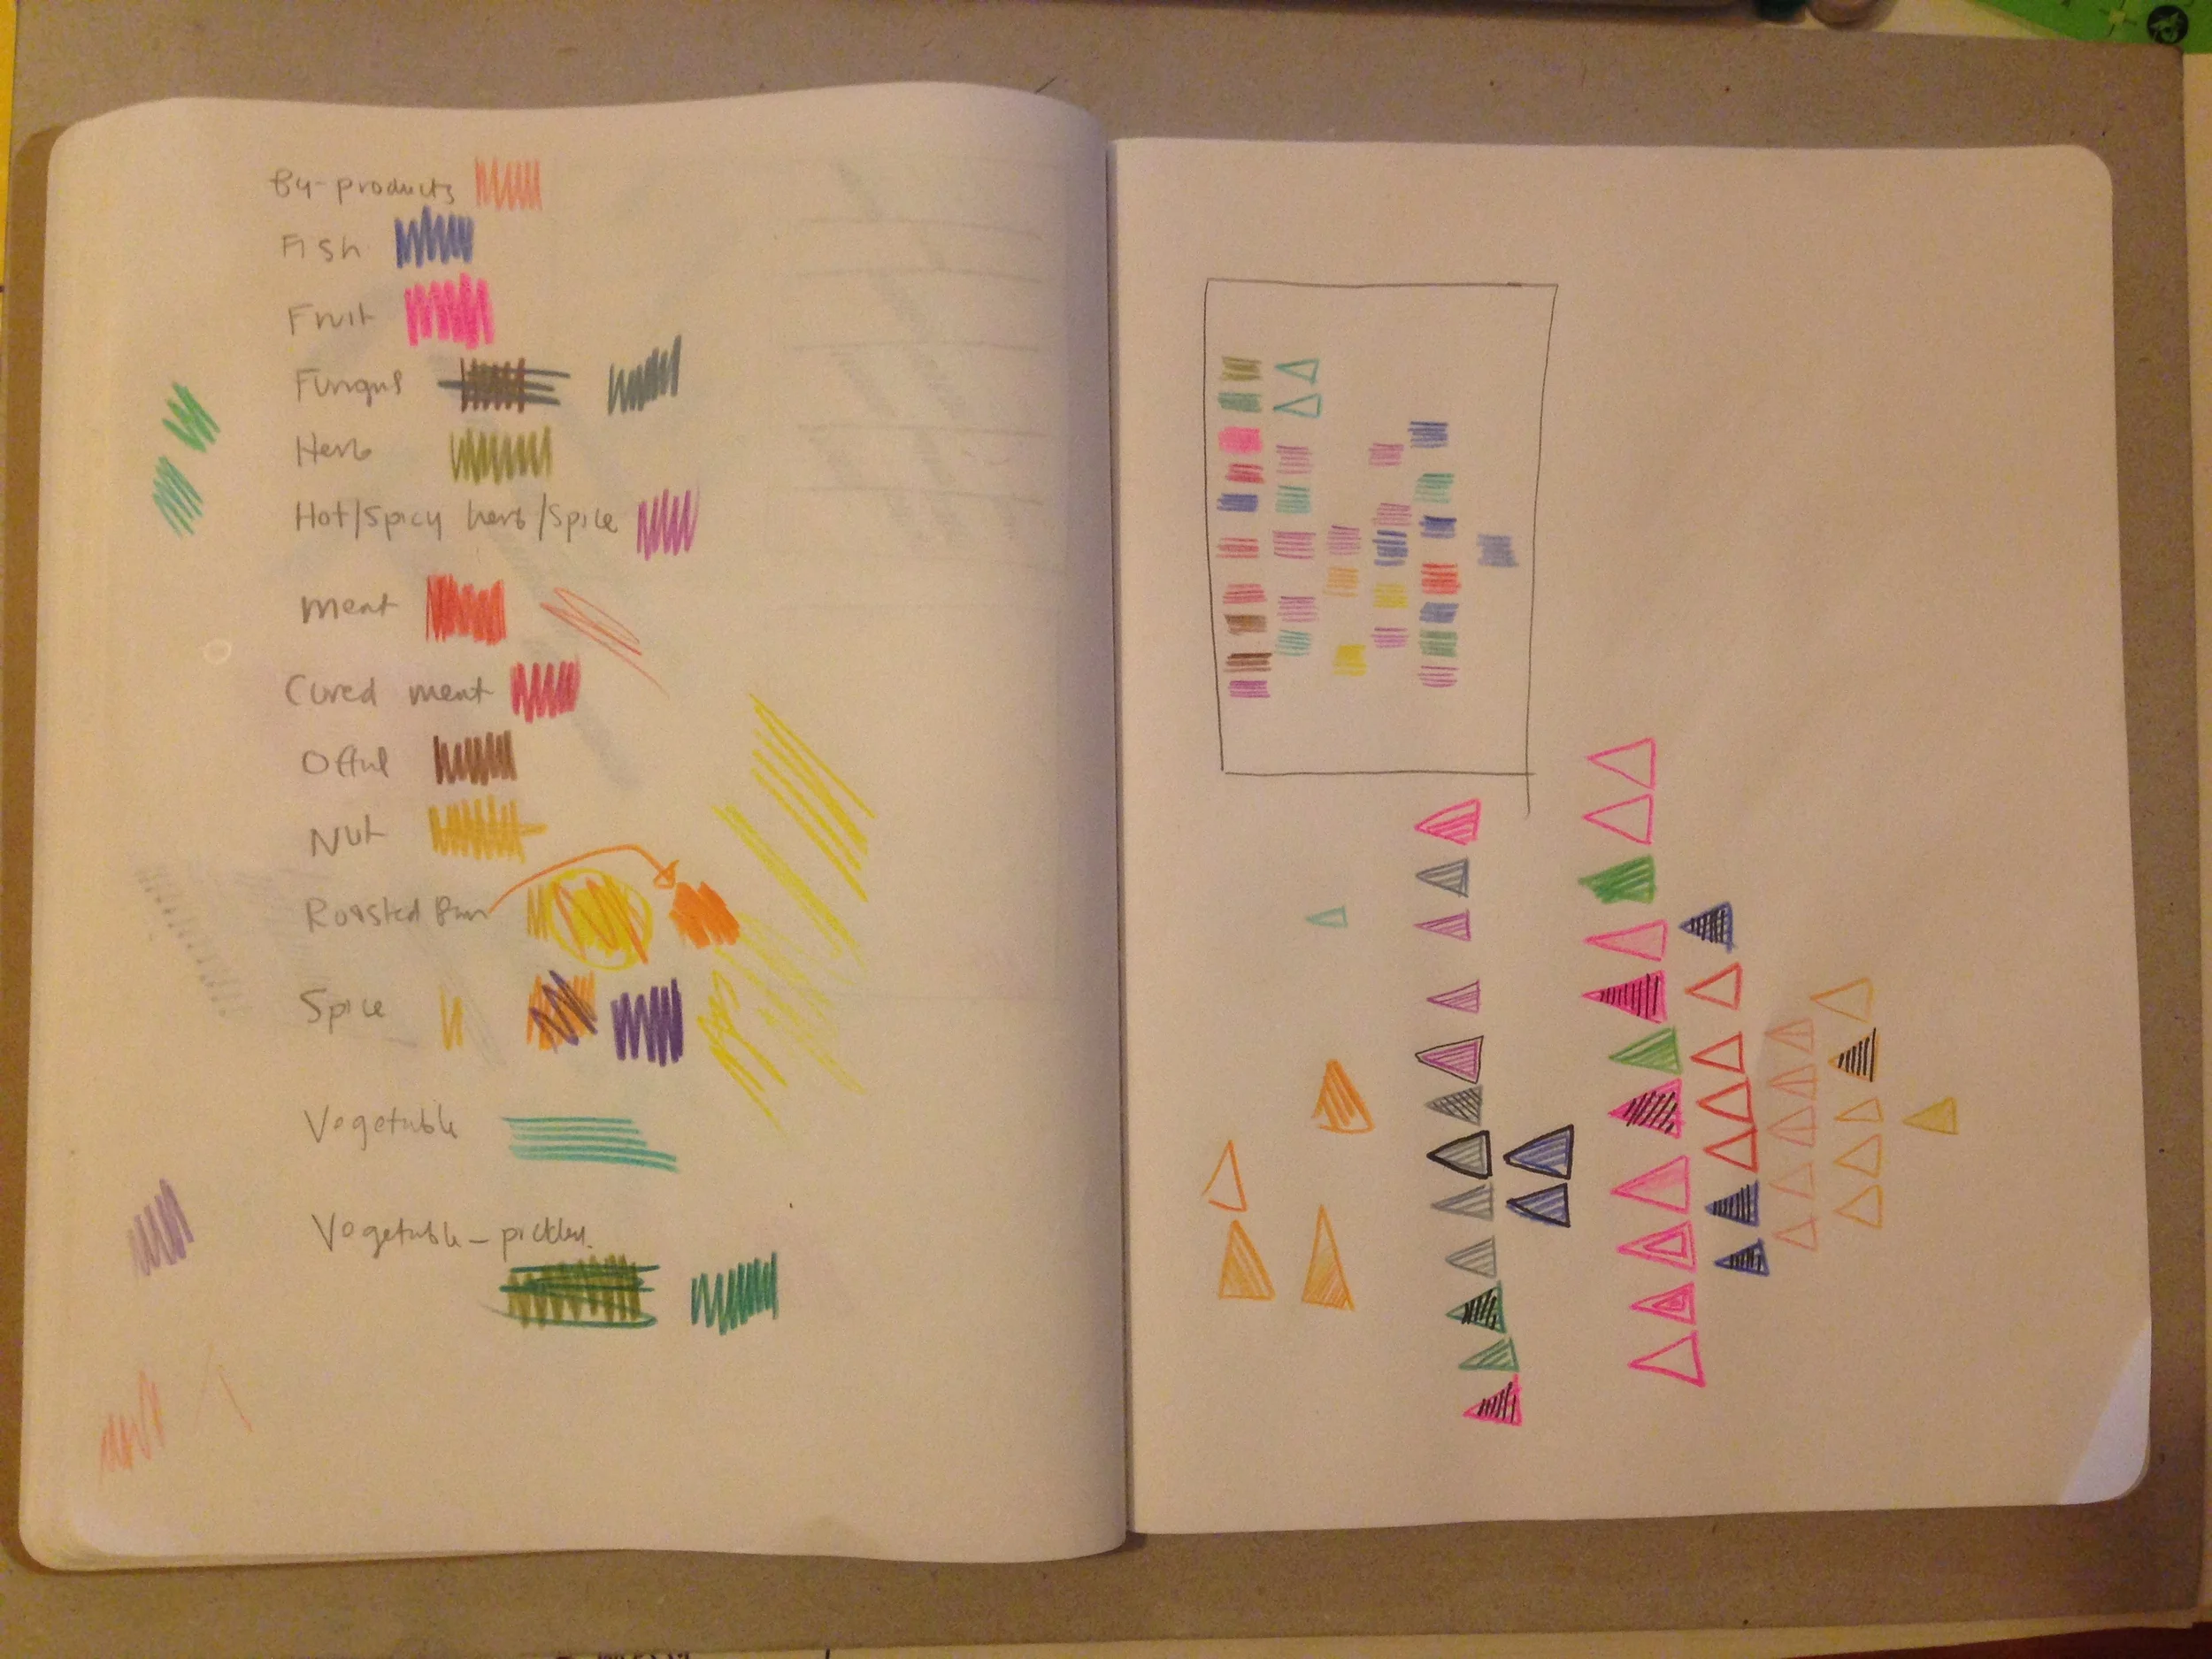 By-products
Fish
Fruit
Fungus
Herb
Hot/Spicy herb/Spice
meat
Cured meat
Offul
Nut
Roasted
Spice
Vegetable
Vegetable - pickles.